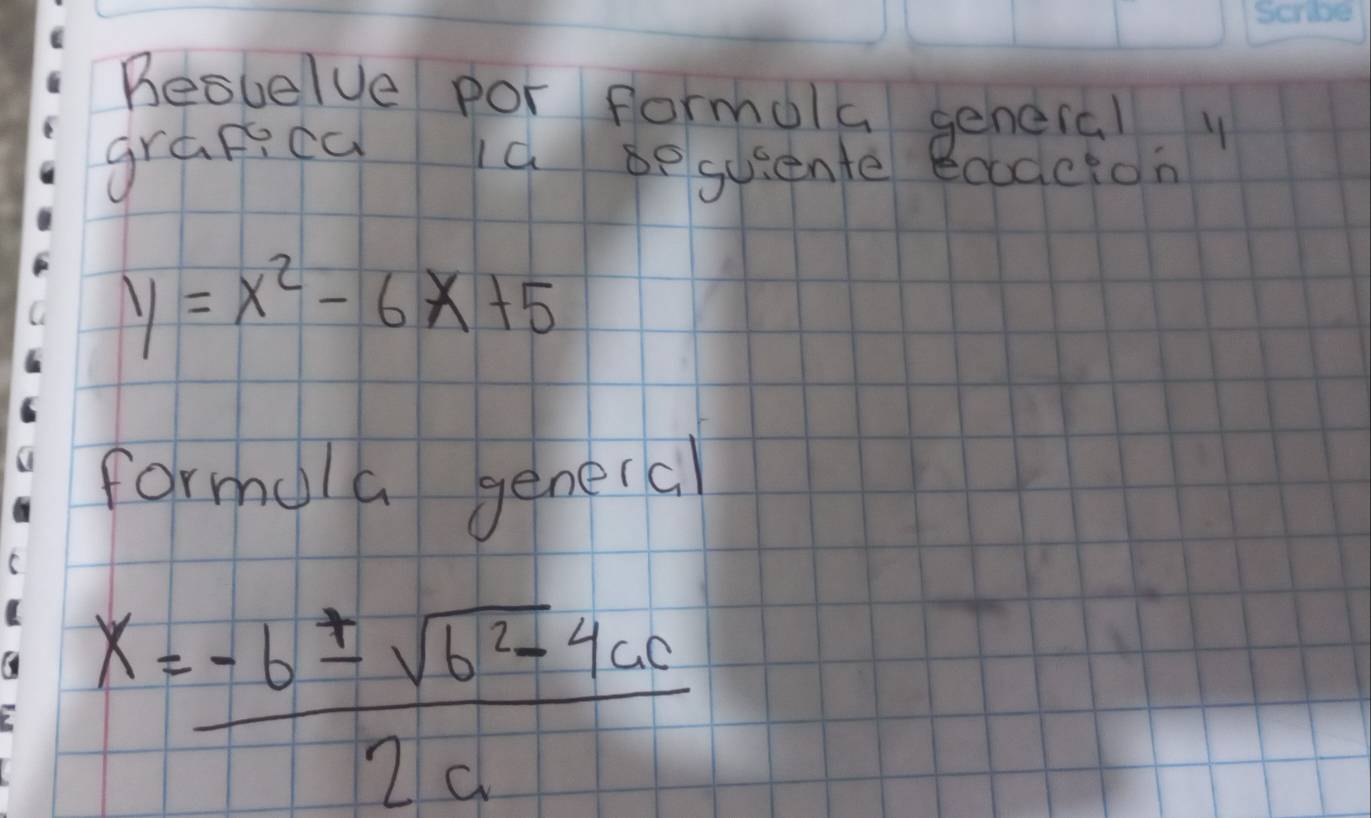 Scribe
Resuelve por formula general y
grafica la siguiente Ecuacion
y = x² - 6x + 5
formula general
x = -b ± √b² - 4ac
2a